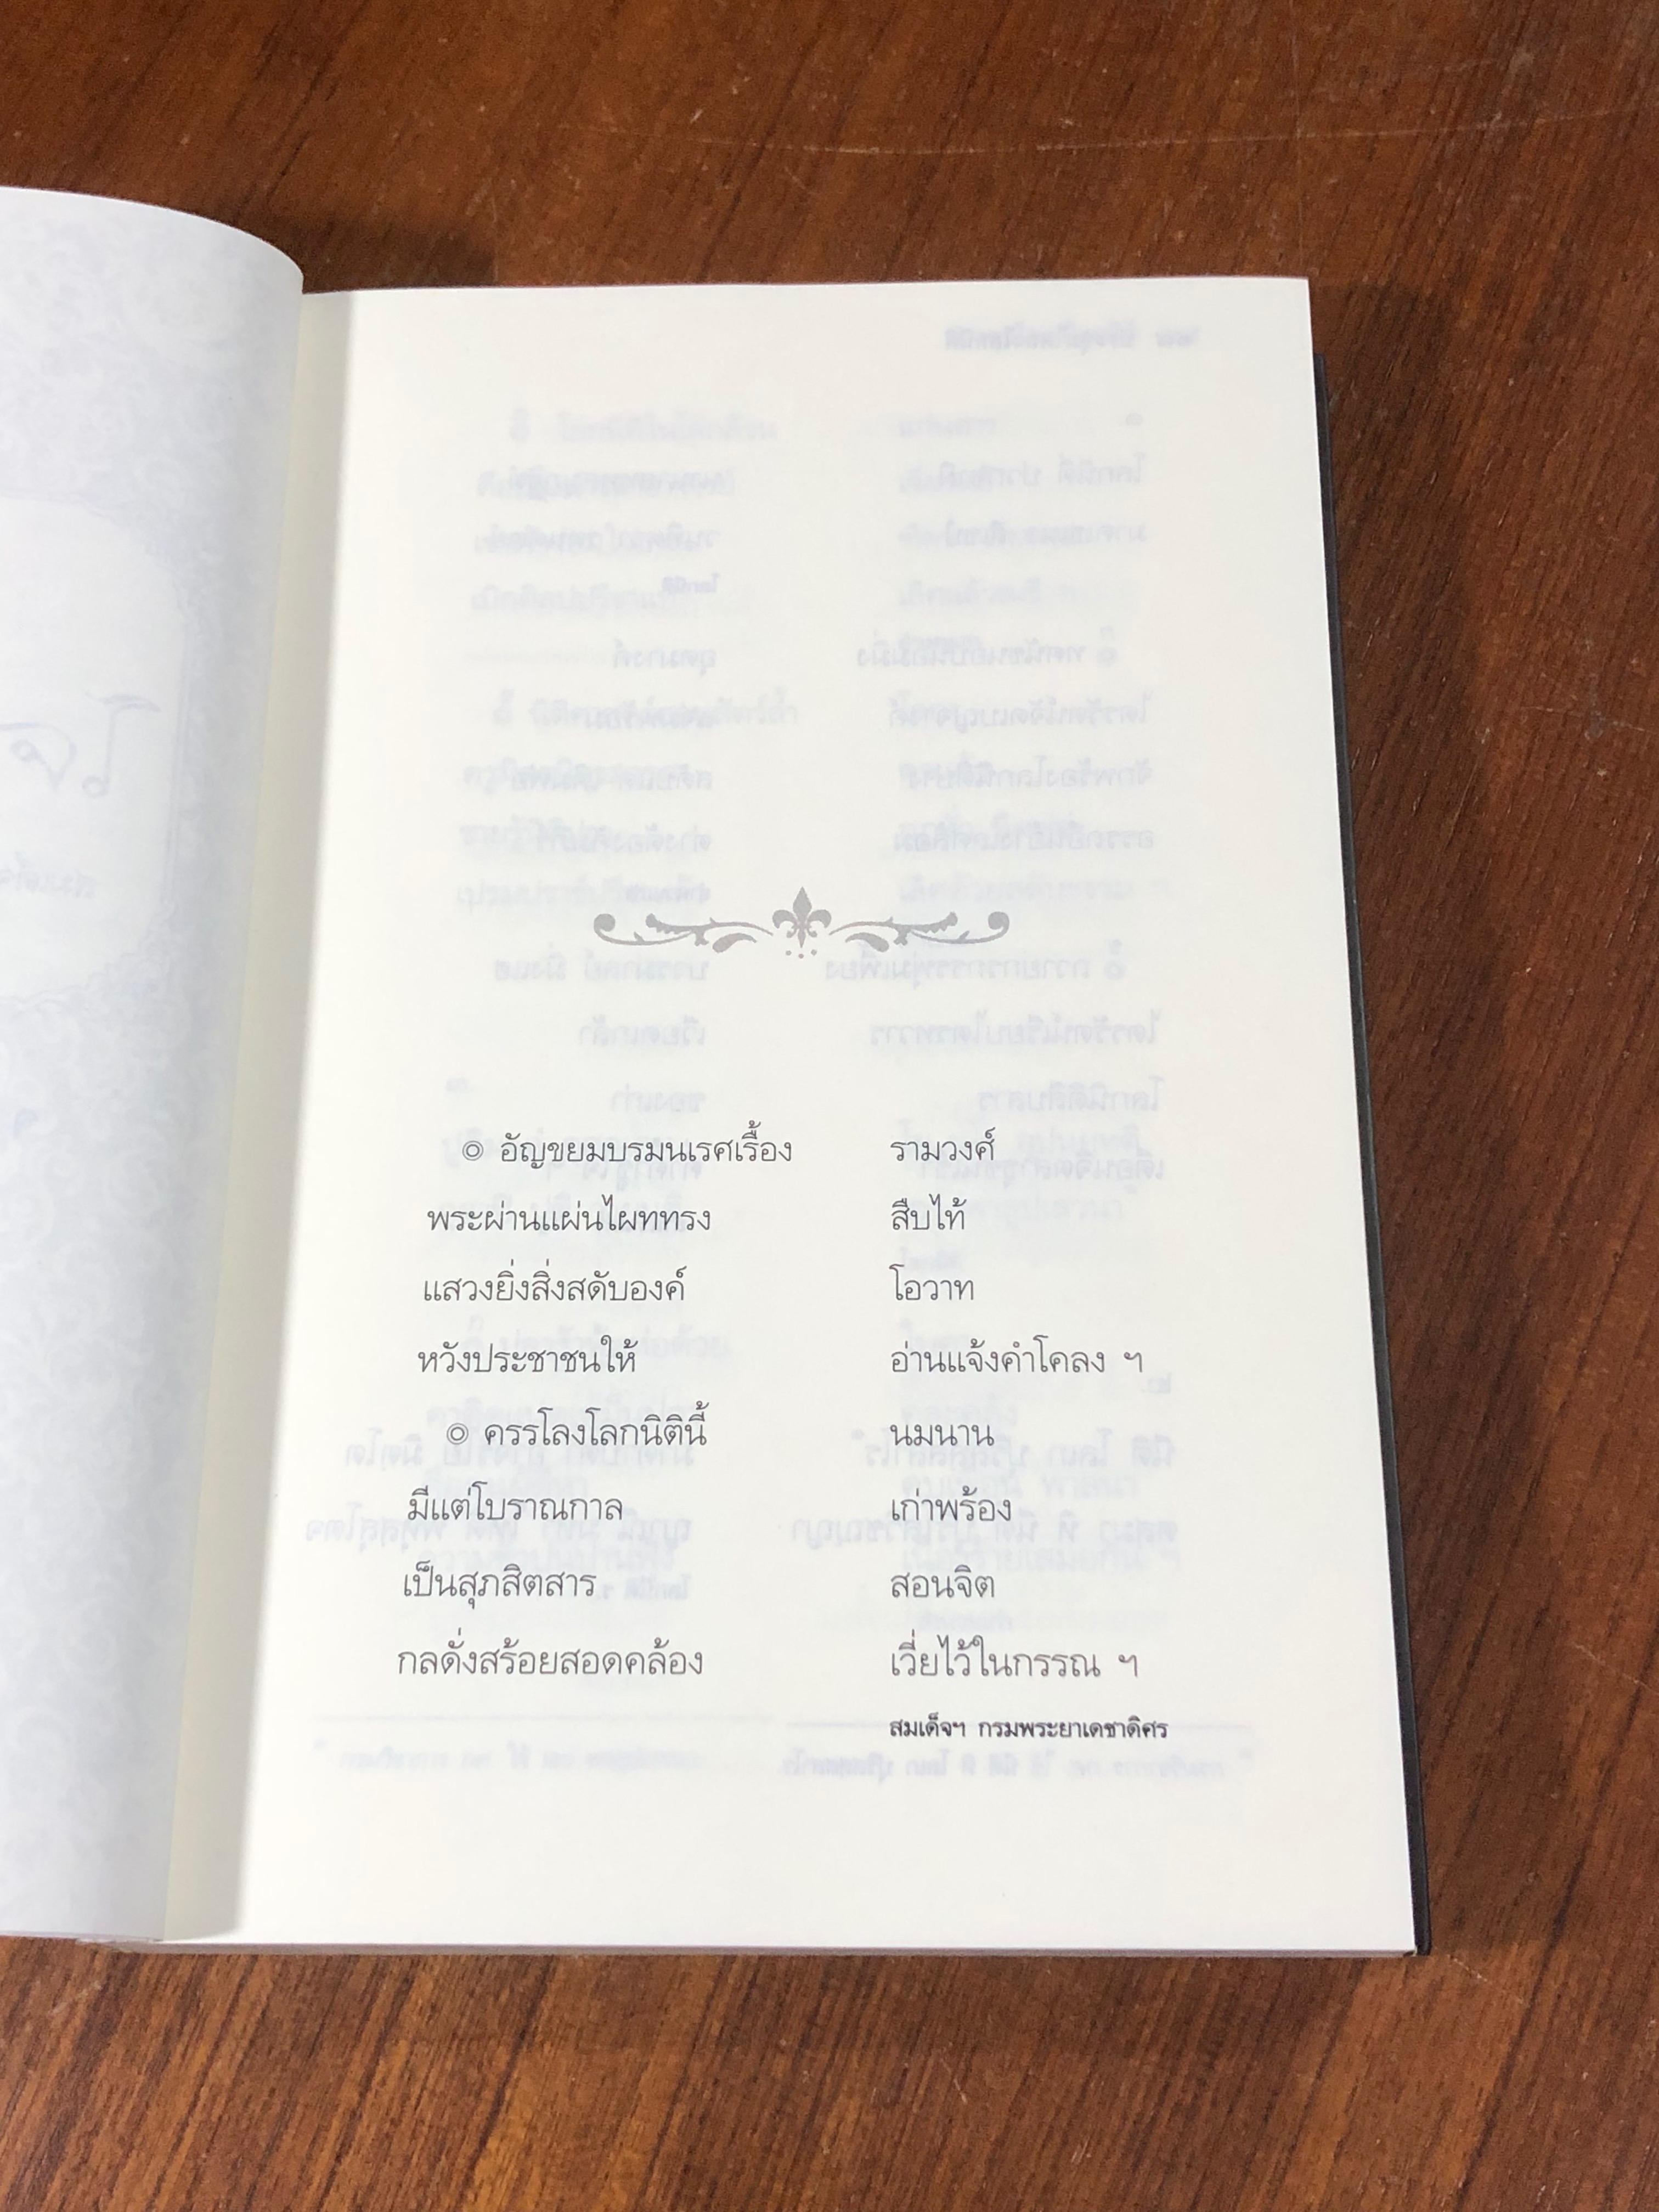 ๏ อัญขยมบรมนเรศเรื้อง รามวงศ์
พระผ่านแผ่นไผททรง สืบไท้
แสวงยิ่งสิ่งสดับองค์ โอวาท
หวังประชาชนให้ อ่านแจ้งคำโคลง ฯ
๏ ครรโลงโลกนิตินี้ นมนาน
มีแต่โบราณกาล เก่าพร้อง
เป็นสุภสิตสาร สอนจิต
กลดั่งสร้อยสอดคล้อง เวี่ยไว้ในกรรณ ฯ
สมเด็จฯ กรมพระยาเดชาดิศร